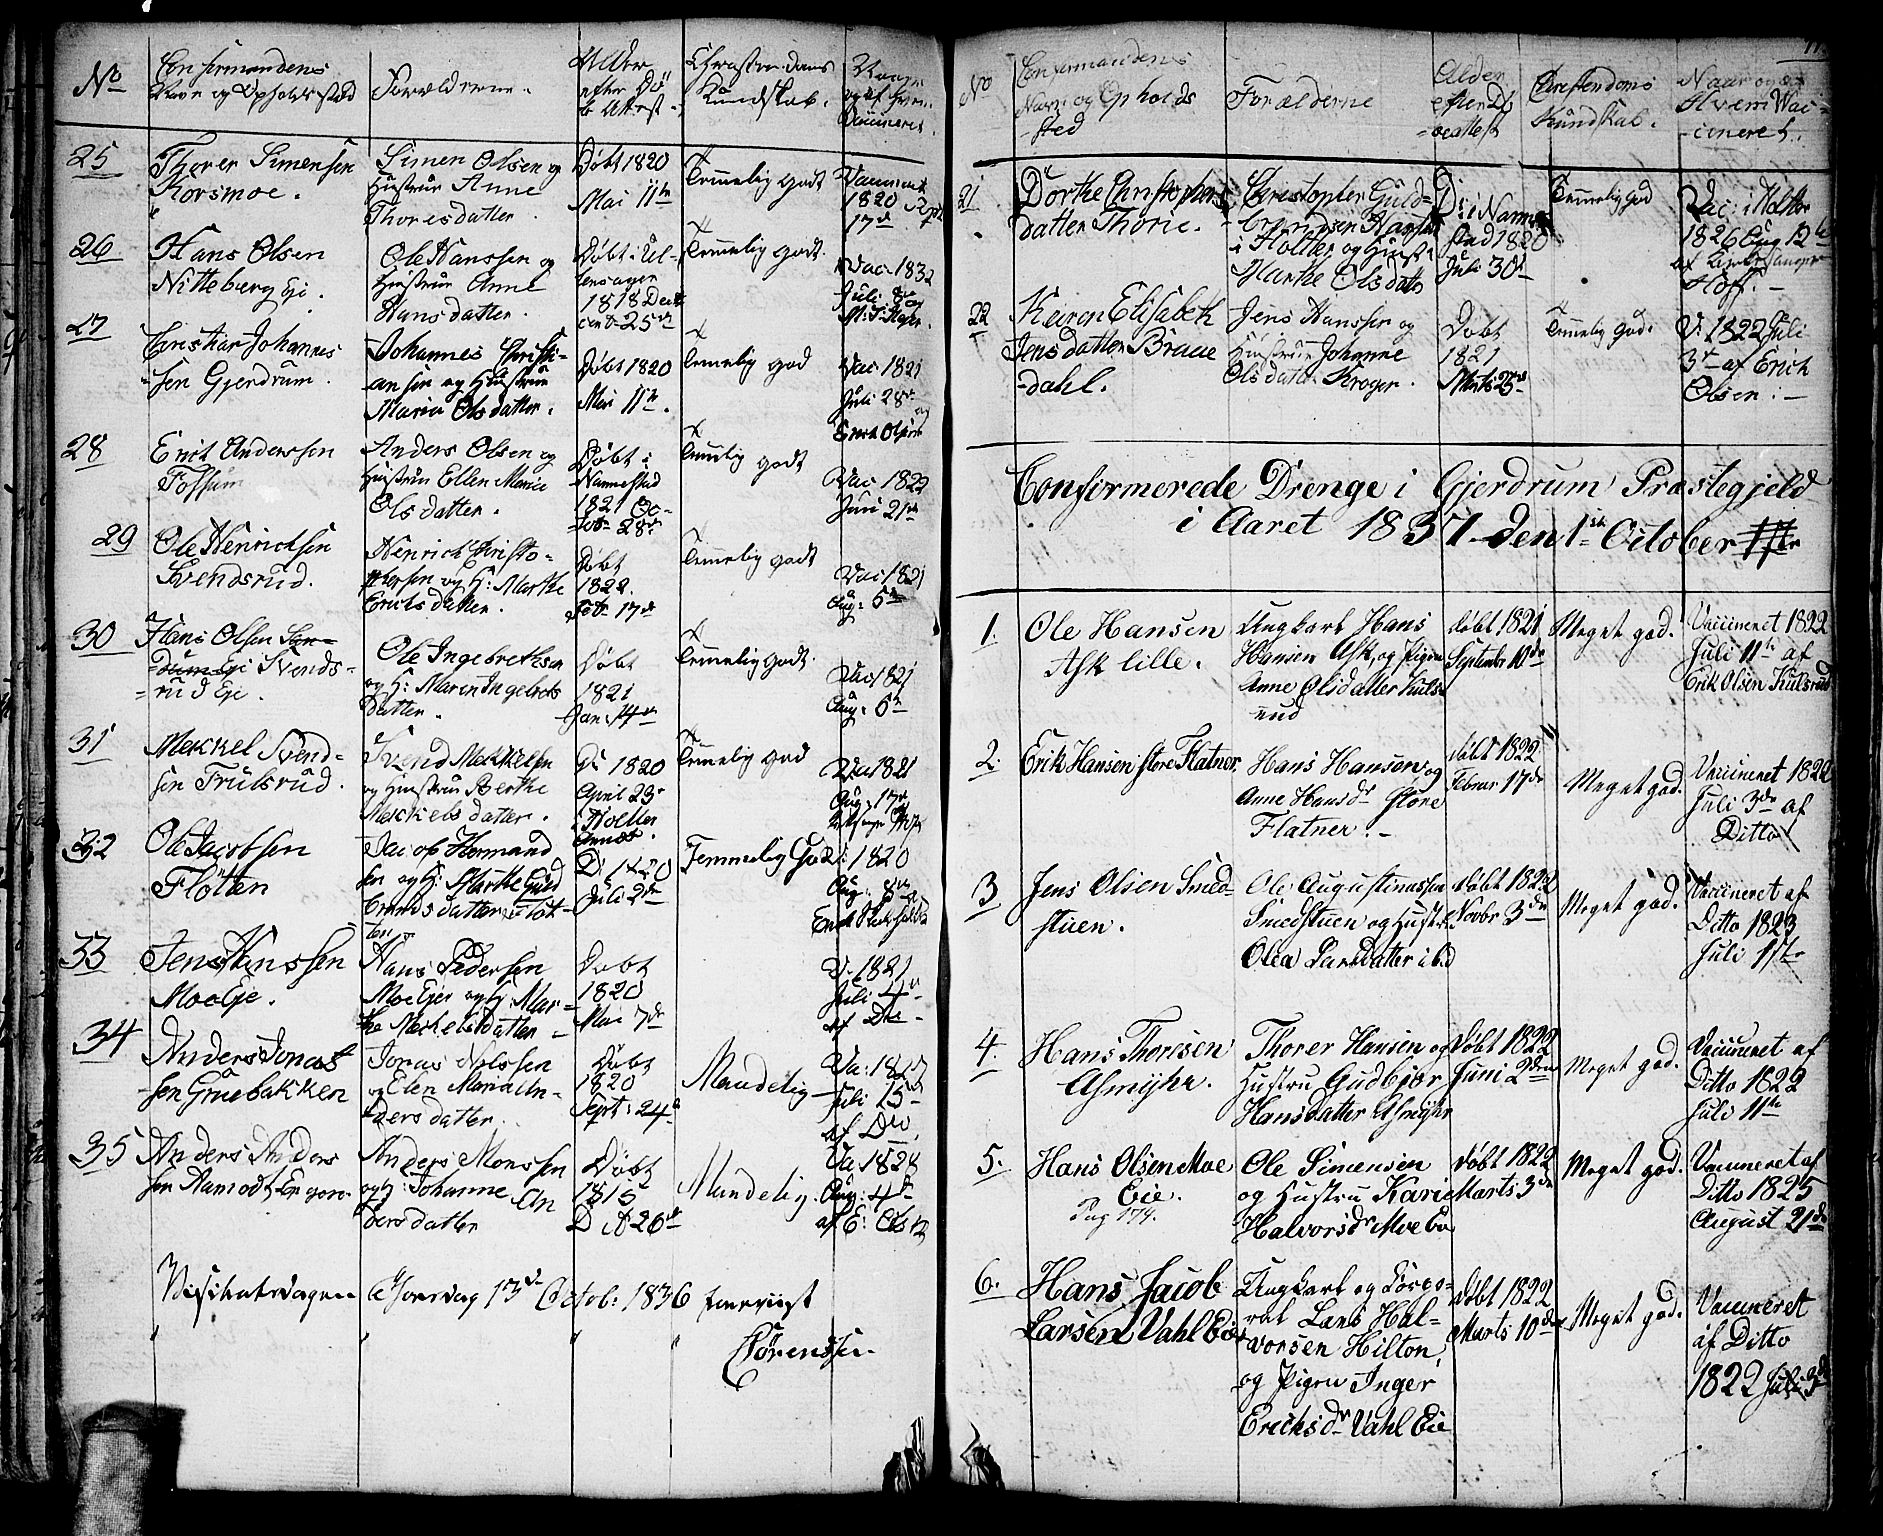 No
Confirmandens
Navn og Opholdssted
Forældrene.
Alder
efter Dø-
be Attest.
Christendoms
Kundskab.
Vaccineret.
25
Thorer Simensen
Korsmoe.
Simen Olsen og
Hustrue Anne
Thoresdatter.
Døbt 1820
Mai 11te
Temmelig godt
1820
17de
26
Hans Olsen
Nitteberg Eie.
Ole Hanssen og
Hustrue Anne
Hansdatter.
Døbt i Ul-
lensager
1818 Decb
25de
Temmelig godt.
Vac. 1832
Juli
27
Christian Johannes-
sen Gjerdrum.
Johannes Christi-
ansen og Hustrue
Maria Olsdatter.
Døbt 1820
Mai 11te.
Temmelig god
Vac: 1821
Juli 28de
Erich Olsen
28
Erich Anderssen
Fossum
Anders Olsen og
Hustrue Ellen Marie
Olsdatter.
Døbt i
Nannestad
1821 Oc-
tob. 28de
Temmelig godt
Vac 1822
Juni 21de
29
Ole Henrichsen
Svendsrud.
Henrich Christo-
phersen og H: Marthe
Erichsdatter.
Døbt
1822.
Feb 17de
Temmelig godt
Vac 1821
Aug: 5te
30
Hans Olsen
Svends-
rud Eie.
Ole Ingebrethsen
og H: Maren Ingebrets
datter.
Døbt
1821
Jan: 14de
Temmelig godt.
Vac 1821
Aug: 5te
31
Mekkel Svend-
sen Trulsrud.
Svend Mekkelsen
og Hustrue Berthe
Mekkelsdatter.
D: 1820
April 23de
i Holter
Annex.
Temmelig god
Vac 1821
Aug: 17de
32
Ole Jacobsen
Fløtten
Jacob Hermand
sen og H: Marthe Guld
brandsdatter Fløt-
ten
D: 1820
Juli 2de
Temmelig God:
1820
Aug: 8de
33
Jens Hanssen
Moe Eje.
Hans Pedersen
Moe Eje og H: Mar-
the Mekkelsdatter
Døbt
1820
Mai 7de
V. 1821
Juli 4de
af Do
34
Anders Jonas-
sen Gruebakken
Jonas Nilssen
og Elen Maria An-
dersdatter.
Døbt
1820
Sept: 24de
Maadelig
Juli 15de
af Do
35
Anders Anders
sen
Anders Monssen
og H: Johanne An
dersdatter
Døbt
1815
D 26de
Maadelig.
Va 1828
Aug: 4de
af E: Olsen
Visitatsdagen Torsdag 13de Octob: 1836 foreviist
Sørenssen
No
Confirmandens
Navn og Opholds
sted
Forælderne
Alder
efter Dø
beattest
Christendoms
Kundskab.
Naar og af
Hvem Vac-
cineret.
21
Dorthe Christophers
datter Thorie.
Christopher Guld-
brandsen
i Holter og Hust:
Marthe Olsdatter
D: i Nanne
stad 1820
Juli 30te
Temmelig God
Vac: i Holter
1826 Aug 12te
af
Hoff.
22
Keiren Elisabeth
Jensdatter Braae
dahl.
Jens Hanssen og
Hustrue Johanne
Olsdatter Kroger.
Døbt
1821
Marts 25de
Temmelig god.
V. 1822 Juli
3de af Erich
Olsen.
Confirmerede Drenge i Gjerdrum Præstegjeld
i Aaret 1837 den 1ste October
1.
Ole Hansen
Ask lille.
Ungkarl Hans
Hansen Ask, og Pigen
Anne Olsdatter Kuls-
rud
døbt 1821
September 10de
Meget god.
Vaccineret 1822
Juli 11te af
Erik Olsen Kulsrud
2.
Erik Hansen store Flatner.
Hans Hansen og
Anne Hansdr store
Flatner.
døbt 1822
Februar 17de
Meget god.
Vaccineret 1822
Juli 3de af
Ditto
3
Jens Olsen Smed-
stuen.
Ole Augustinussen
Smedstuen og Hustr.
Olea Larsdatter ibd
døbt 1822
Novbr 3de
Meget god.
Vaccineret af
Ditto 1823
Juli 17de
4.
Hans Thoresen
Asmyhr.
Thorer Hansen og
Hustru Gudbjør
Hansdatter Asmyhr
døbt 1822
Juni 2den
Meget god.
Vaccineret af
Ditto 1822
Juli 11te
5.
Hans Olsen Moe
Eie.
Pag 174.
Ole Simensen
og Hustru Karie
Halvorsdr Moe Eie
døbt 1822
Marts 3de
Meget god.
Vaccineret af
Ditto 1825
August 21de
6.
Hans Jacob
Larsen Vahl Eie
Ungkarl og Corpo-
ral Lars Hal-
vorsen Hilton,
og Pigen Inger
Erichsdr Vahl Eie
døbt 1822
Marts 10de
Meget god.
Vaccineret
af Ditto
1822 Juli 3de